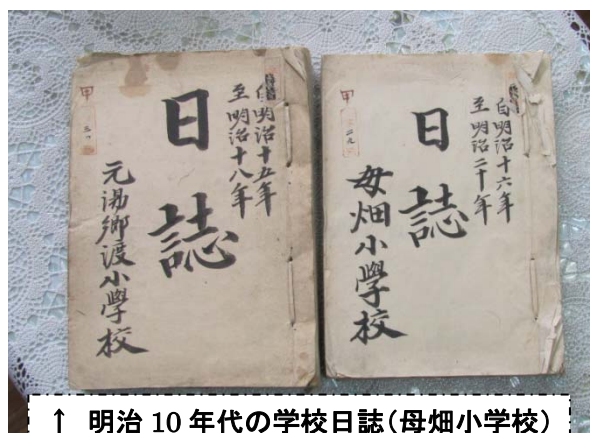 自明治十五年
至明治十八年
日誌
元湯郷渡小學校
甲
自明治十六年
至明治二十年
日誌
母畑小學校
甲
二九
↑ 明治10年代の学校日誌(母畑小学校)